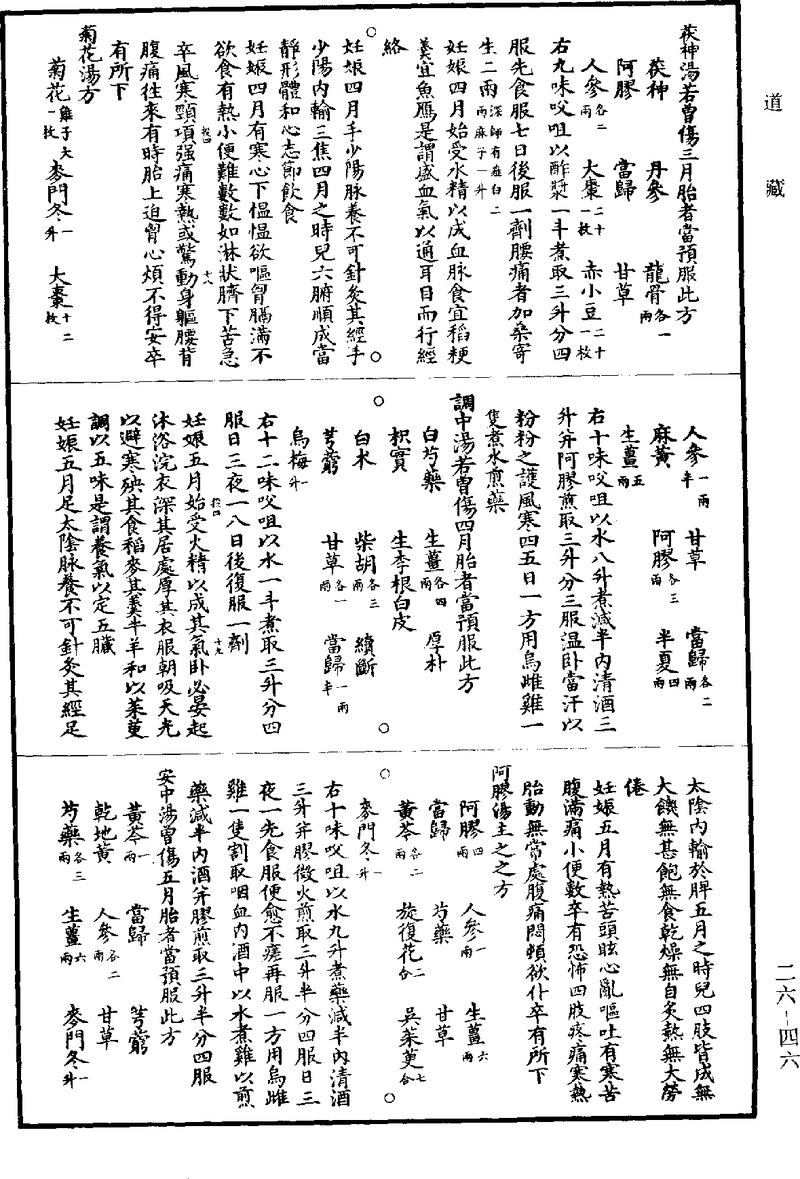 道藏
茯神湯若曾傷三月胎者當預服此方
茯神 丹參 龍骨各一兩
阿膠 當歸 甘草
人參各二兩 大棗二十一枚 赤小豆二十一枚
右九味㕮咀以酢漿一斗煮取三升分四
服先食服七日後服一劑腰痛者加桑寄
生二兩深師有薤白二兩麻子一升
妊娠四月始受水精以成血脉食宜稻粳
羹宜魚鴈是謂盛血氣以通耳目而行經
絡
妊娠四月手少陽脉養不可針灸其經手
少陽内輸三焦四月之時兒六腑順成當
靜形體和心志節飲食
妊娠四月有寒心下愠愠欲嘔胷膈滿不
欲食有熱小便難數數如淋狀臍下苦急
卒風寒頸項强痛寒熱或驚動身軀腰背
腹痛往來有時胎上迫胷心煩不得安卒
有所下
菊花湯方
菊花雞子大一枚 麥門冬一升 大棗十二枚
人參一兩半 甘草 當歸各二兩
麻黃 阿膠各三兩 半夏四兩
生薑五兩
右十味㕮咀以水八升煮減半内清酒三
升并阿膠煎取三升分三服温卧當汗以
粉粉之護風寒四五日一方用烏雌雞一
隻煮水煎藥
調中湯若曾傷四月胎者當預服此方
白芍藥 生薑各四兩 厚朴
枳實 生李根白皮
白术 柴胡各三兩 續斷
芎藭 甘草各一兩 當歸一兩半
烏梅一升
右十二味㕮咀以水一斗煮取三升分四
服日三夜一八日後復服一劑
妊娠五月始受火精以成其氣卧必晏起
沐浴浣衣深其居處厚其衣服朝吸天光
以避寒殃其食稻麥其羹牛羊和以茱萸
調以五味是謂養氣以定五臟
妊娠五月足太陰脉養不可針灸其經足
太陰内輸於脾五月之時兒四肢皆成無
大饑無甚飽無食乾燥無自炙熱無大勞
倦
妊娠五月有熱苦頭眩心亂嘔吐有寒苦
腹滿痛小便數卒有恐怖四肢疼痛寒熱
胎動無常處腹痛悶頓欲仆卒有所下
阿膠湯主之之方
阿膠四兩 人參一兩 生薑六兩
當歸 芍藥 甘草
黃芩各二兩 旋復花二合 吳茱萸七合
麥門冬一升
右十味㕮咀以水九升煮藥減半内清酒
三升并膠微火煎取三升半分四服日三
夜一先食服便愈不瘥再服一方用烏雌
雞一隻割取咽血内酒中以水煮雞以煎
藥減半内酒并膠煎取三升半分四服
安中湯曾傷五月胎者當預服此方
黃芩一兩 當歸 芎藭
乾地黃 人參各二兩 甘草
芍藥各三兩 生薑六兩 麥門冬一升
二六-四六